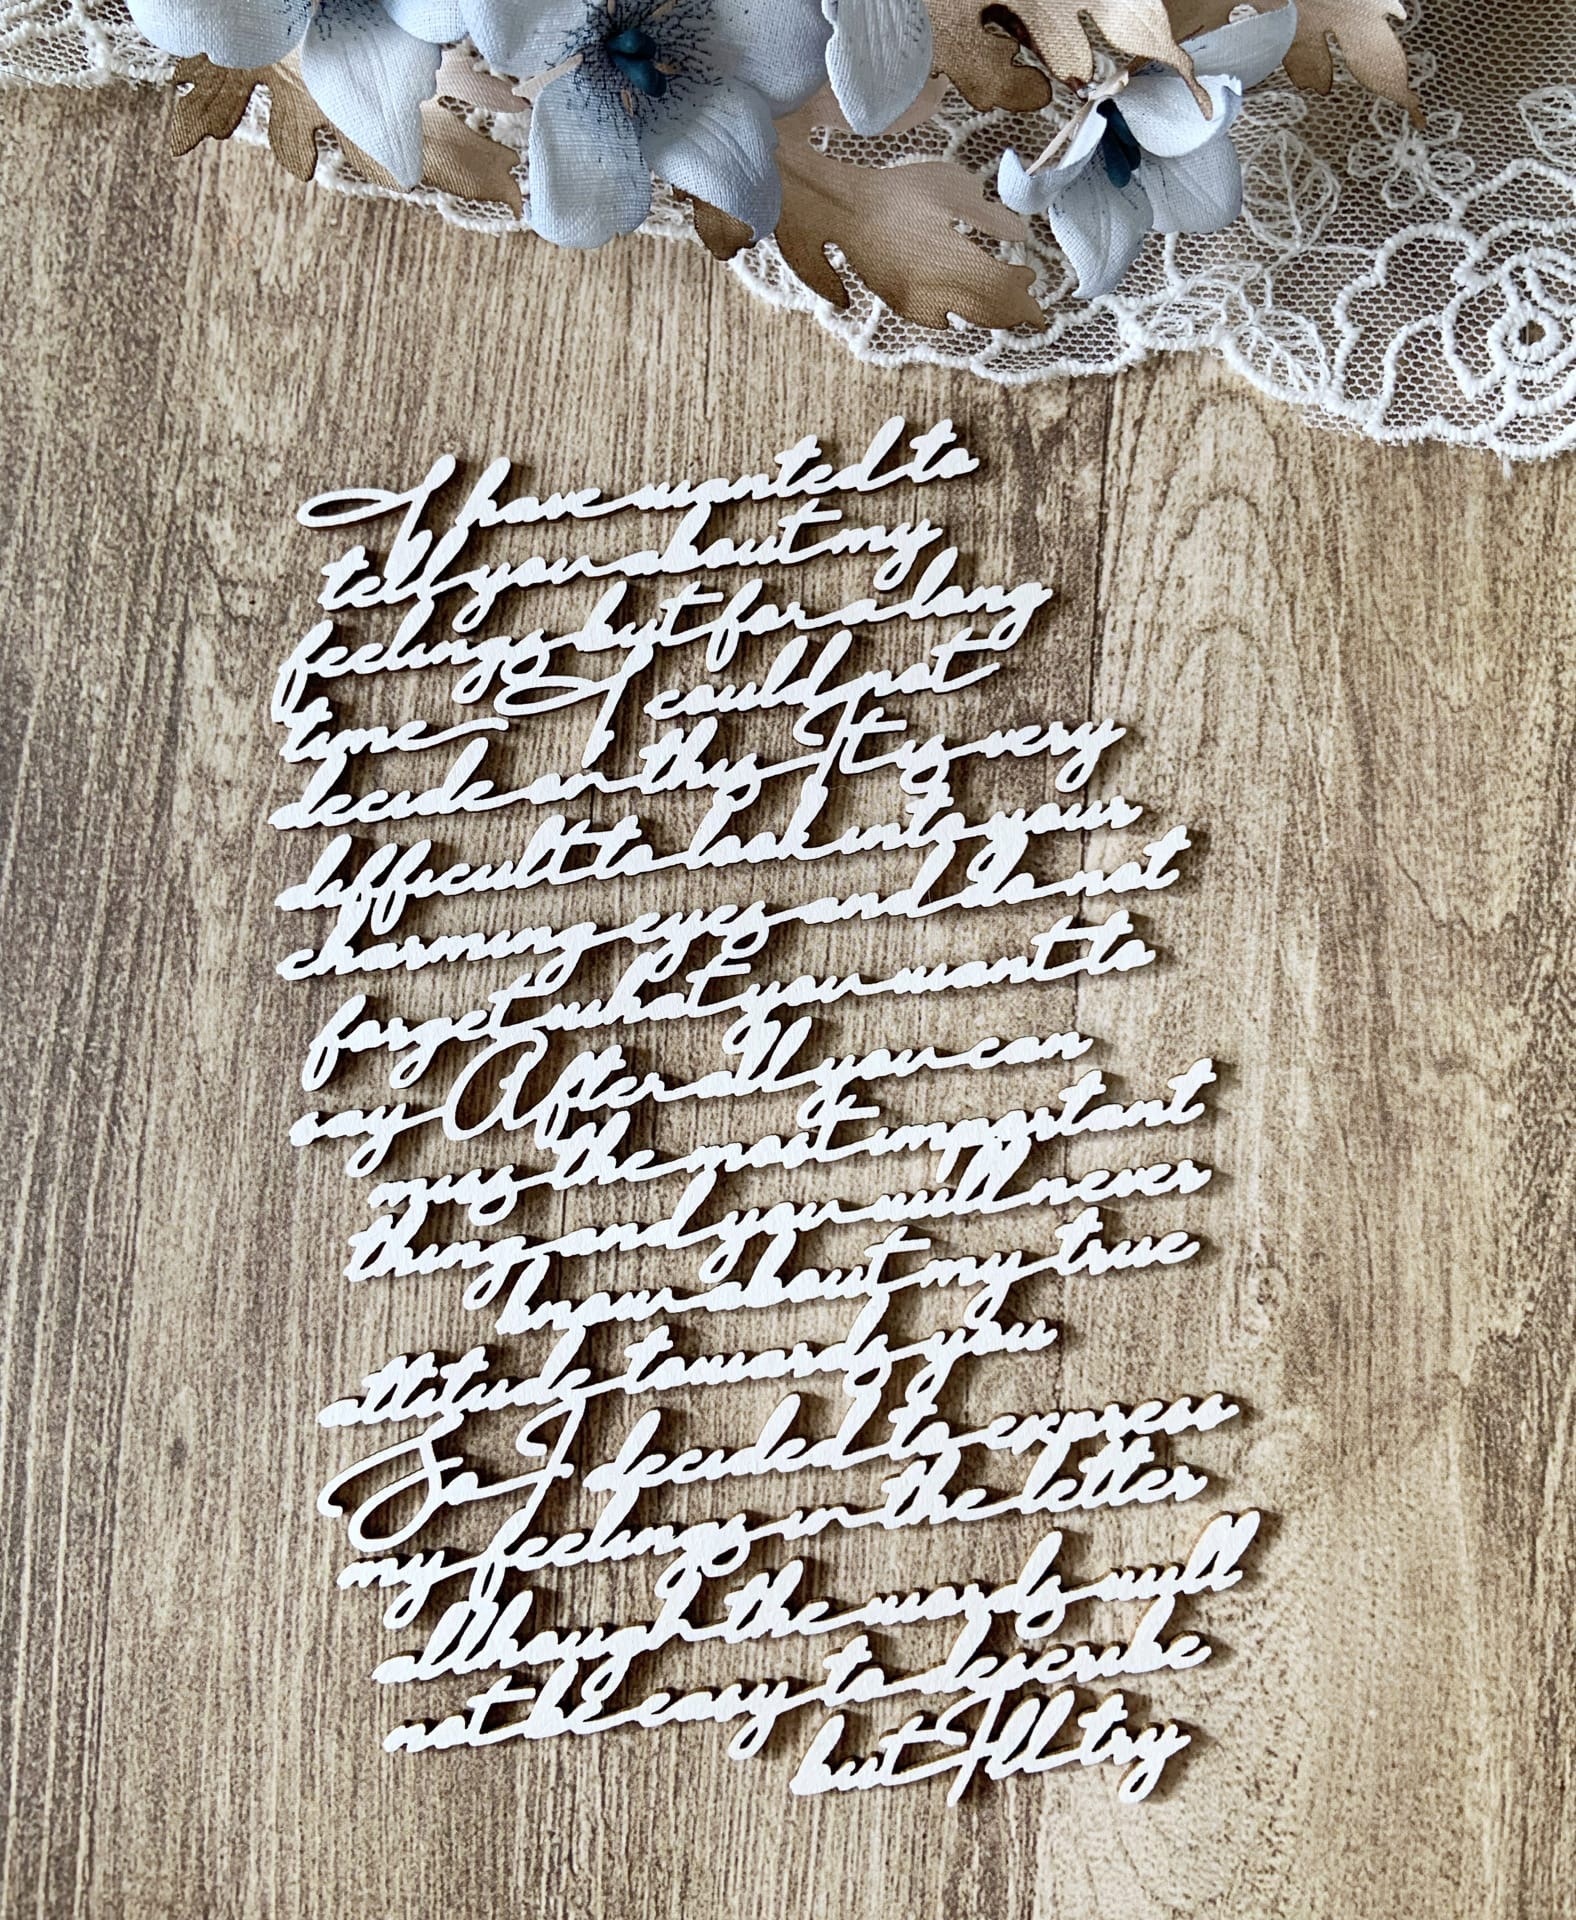 I have wanted to
tell you about my
feelings but for a long
time I could not
decide on this It is very
difficult to look into your
charming eyes and do not
forget what you want to
say After all you can
miss the most important
thing and you will never
know about my true
attitude towards you
So I decided to express
my feelings in the letter
although the words will
not be easy to describe
but I'll try